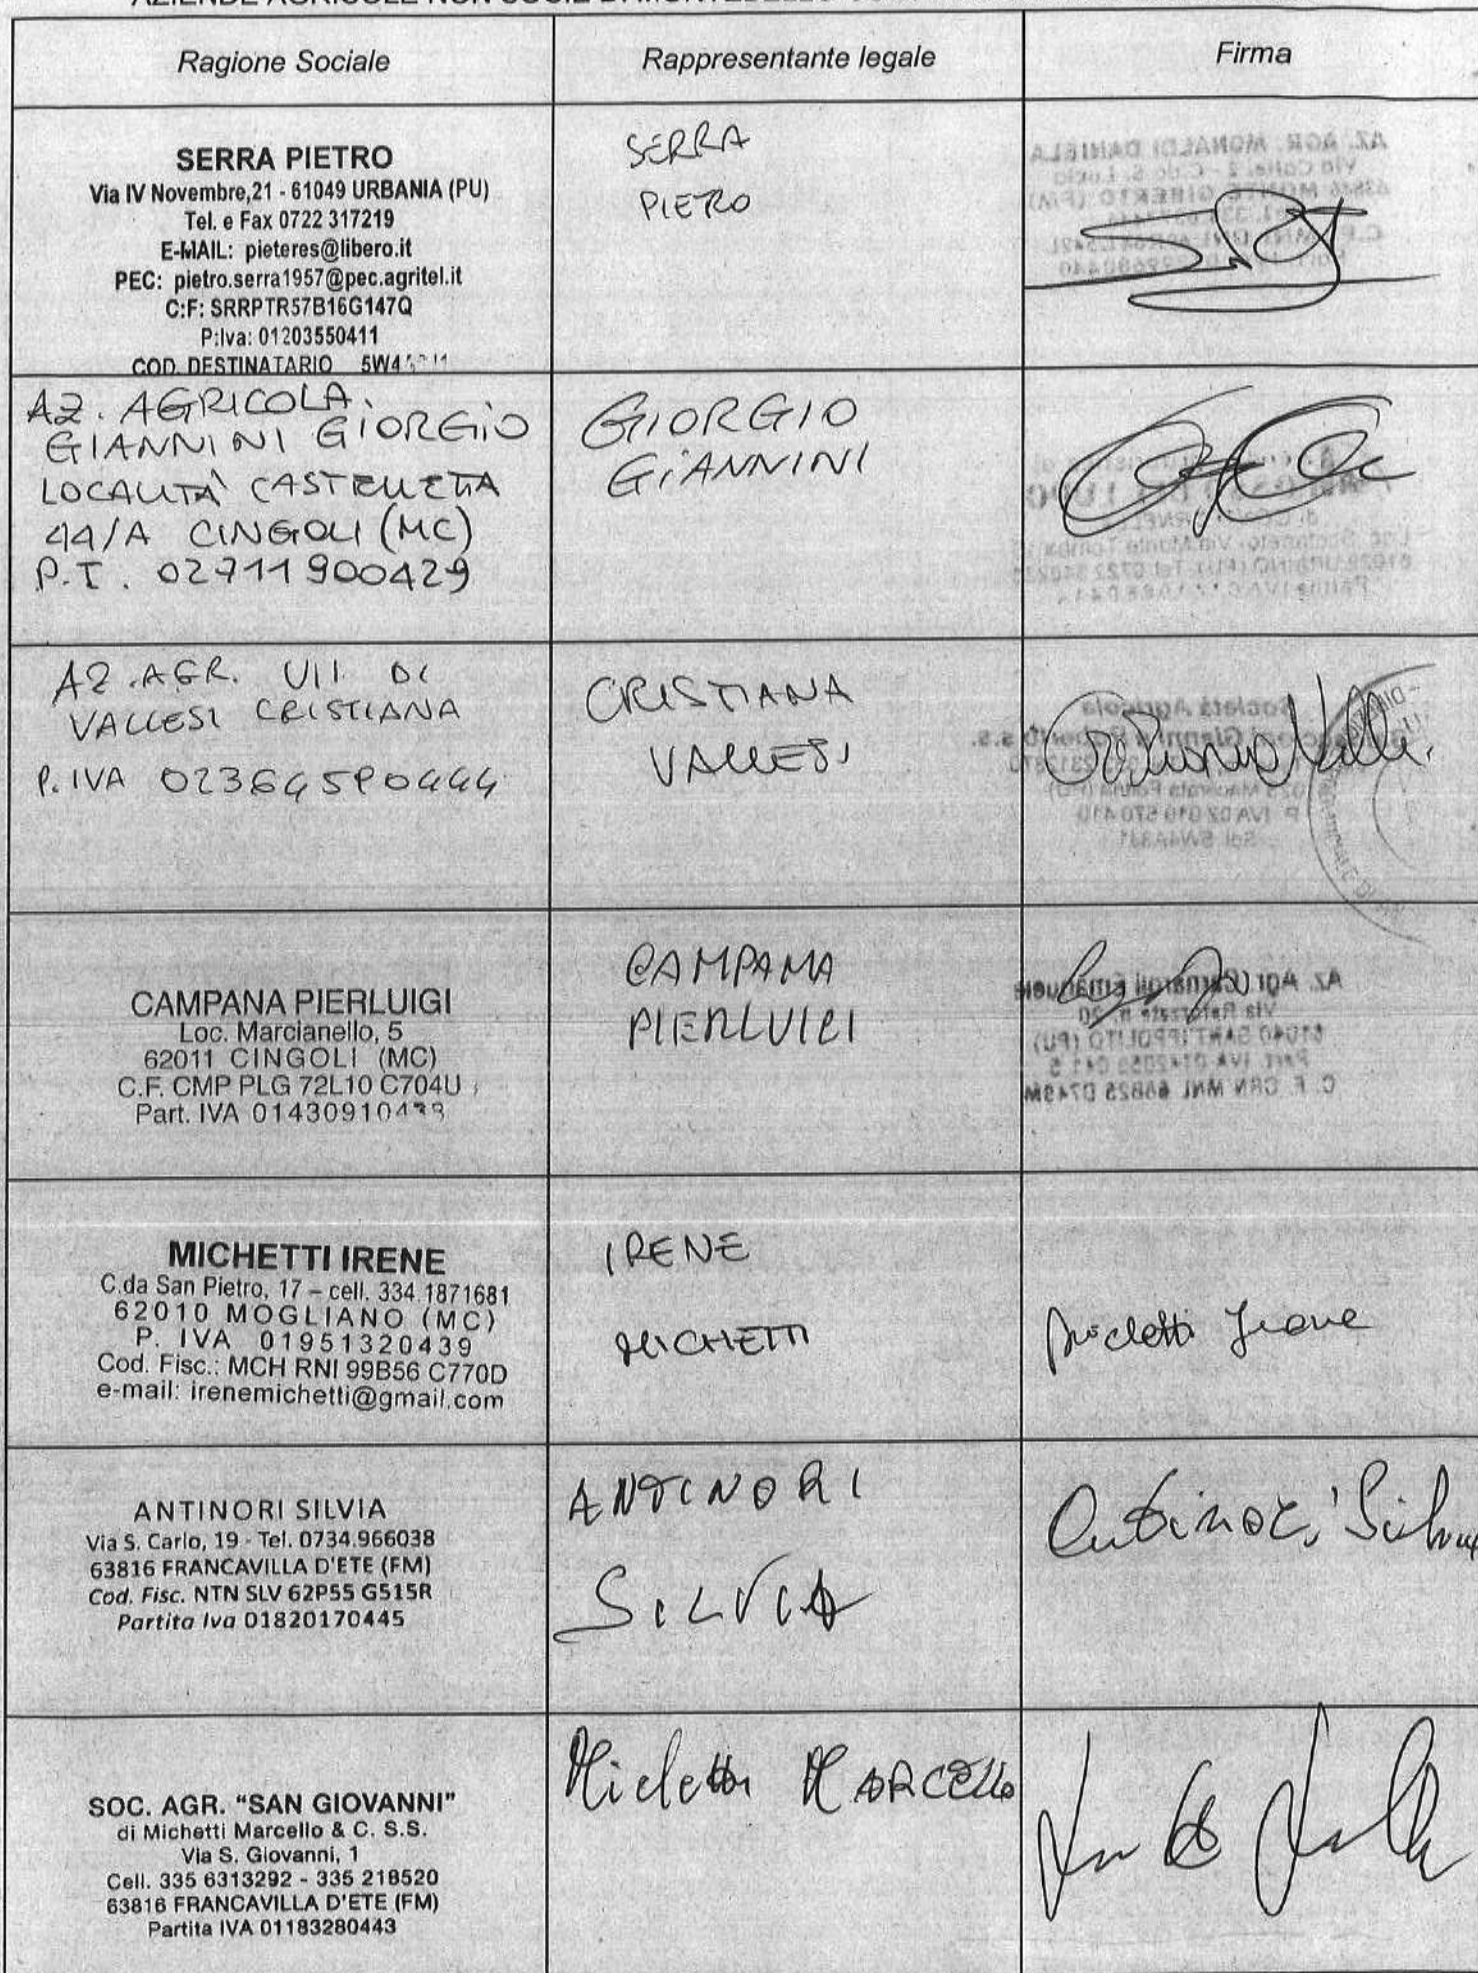 AZIENDE AGRICOLE NON SOCIE
Ragione Sociale
Rappresentante legale
Firma
SERRA PIETRO
Via IV Novembre,21 - 61049 URBANIA (PU)
Tel. e Fax 0722 317219
E-MAIL: pieteres@libero.it
PEC: pietro.serra1957@pec.agritel.it
C:F: SRRPTR57B16G147Q
P:Iva: 01203550411
COD. DESTINATARIO
SERRA
PIETRO
AZ. AGRICOLA
GIANNINI GIORGIO
LOCALITÀ CASTELLETTA
44/A CINGOLI (MC)
P.I. 02711900429
GIORGIO
GIANNINI
AZ. AGR. VII DI
VALLESI CRISTIANA
P. IVA
CRISTIANA
VALLESI
CAMPANA PIERLUIGI
Loc. Marcianello, 5
62011 CINGOLI (MC)
C.F. CMP PLG 72L10 C704U
Part. IVA
CAMPANA
PIERLUIGI
MICHETTI IRENE
C.da San Pietro, 17 – cell. 334 1871681
62010 MOGLIANO (MC)
P. IVA 01951320439
Cod. Fisc.: MCH RNI 99B56 C770D
e-mail: irenemichetti@gmail.com
IRENE
MICHETTI
Michetti Irene
ANTINORI SILVIA
Via S. Carlo, 19 - Tel. 0734.966038
63816 FRANCAVILLA D'ETE (FM)
Cod. Fisc. NTN SLV 62P55 G515R
Partita Iva 01820170445
ANTINORI
SILVIA
Antinori Silvia
SOC. AGR. “SAN GIOVANNI”
di Michetti Marcello & C. S.S.
Via S. Giovanni, 1
Cell. 335 6313292 - 335 218520
63816 FRANCAVILLA D'ETE (FM)
Partita IVA 01183280443
Michetti MARCELLO